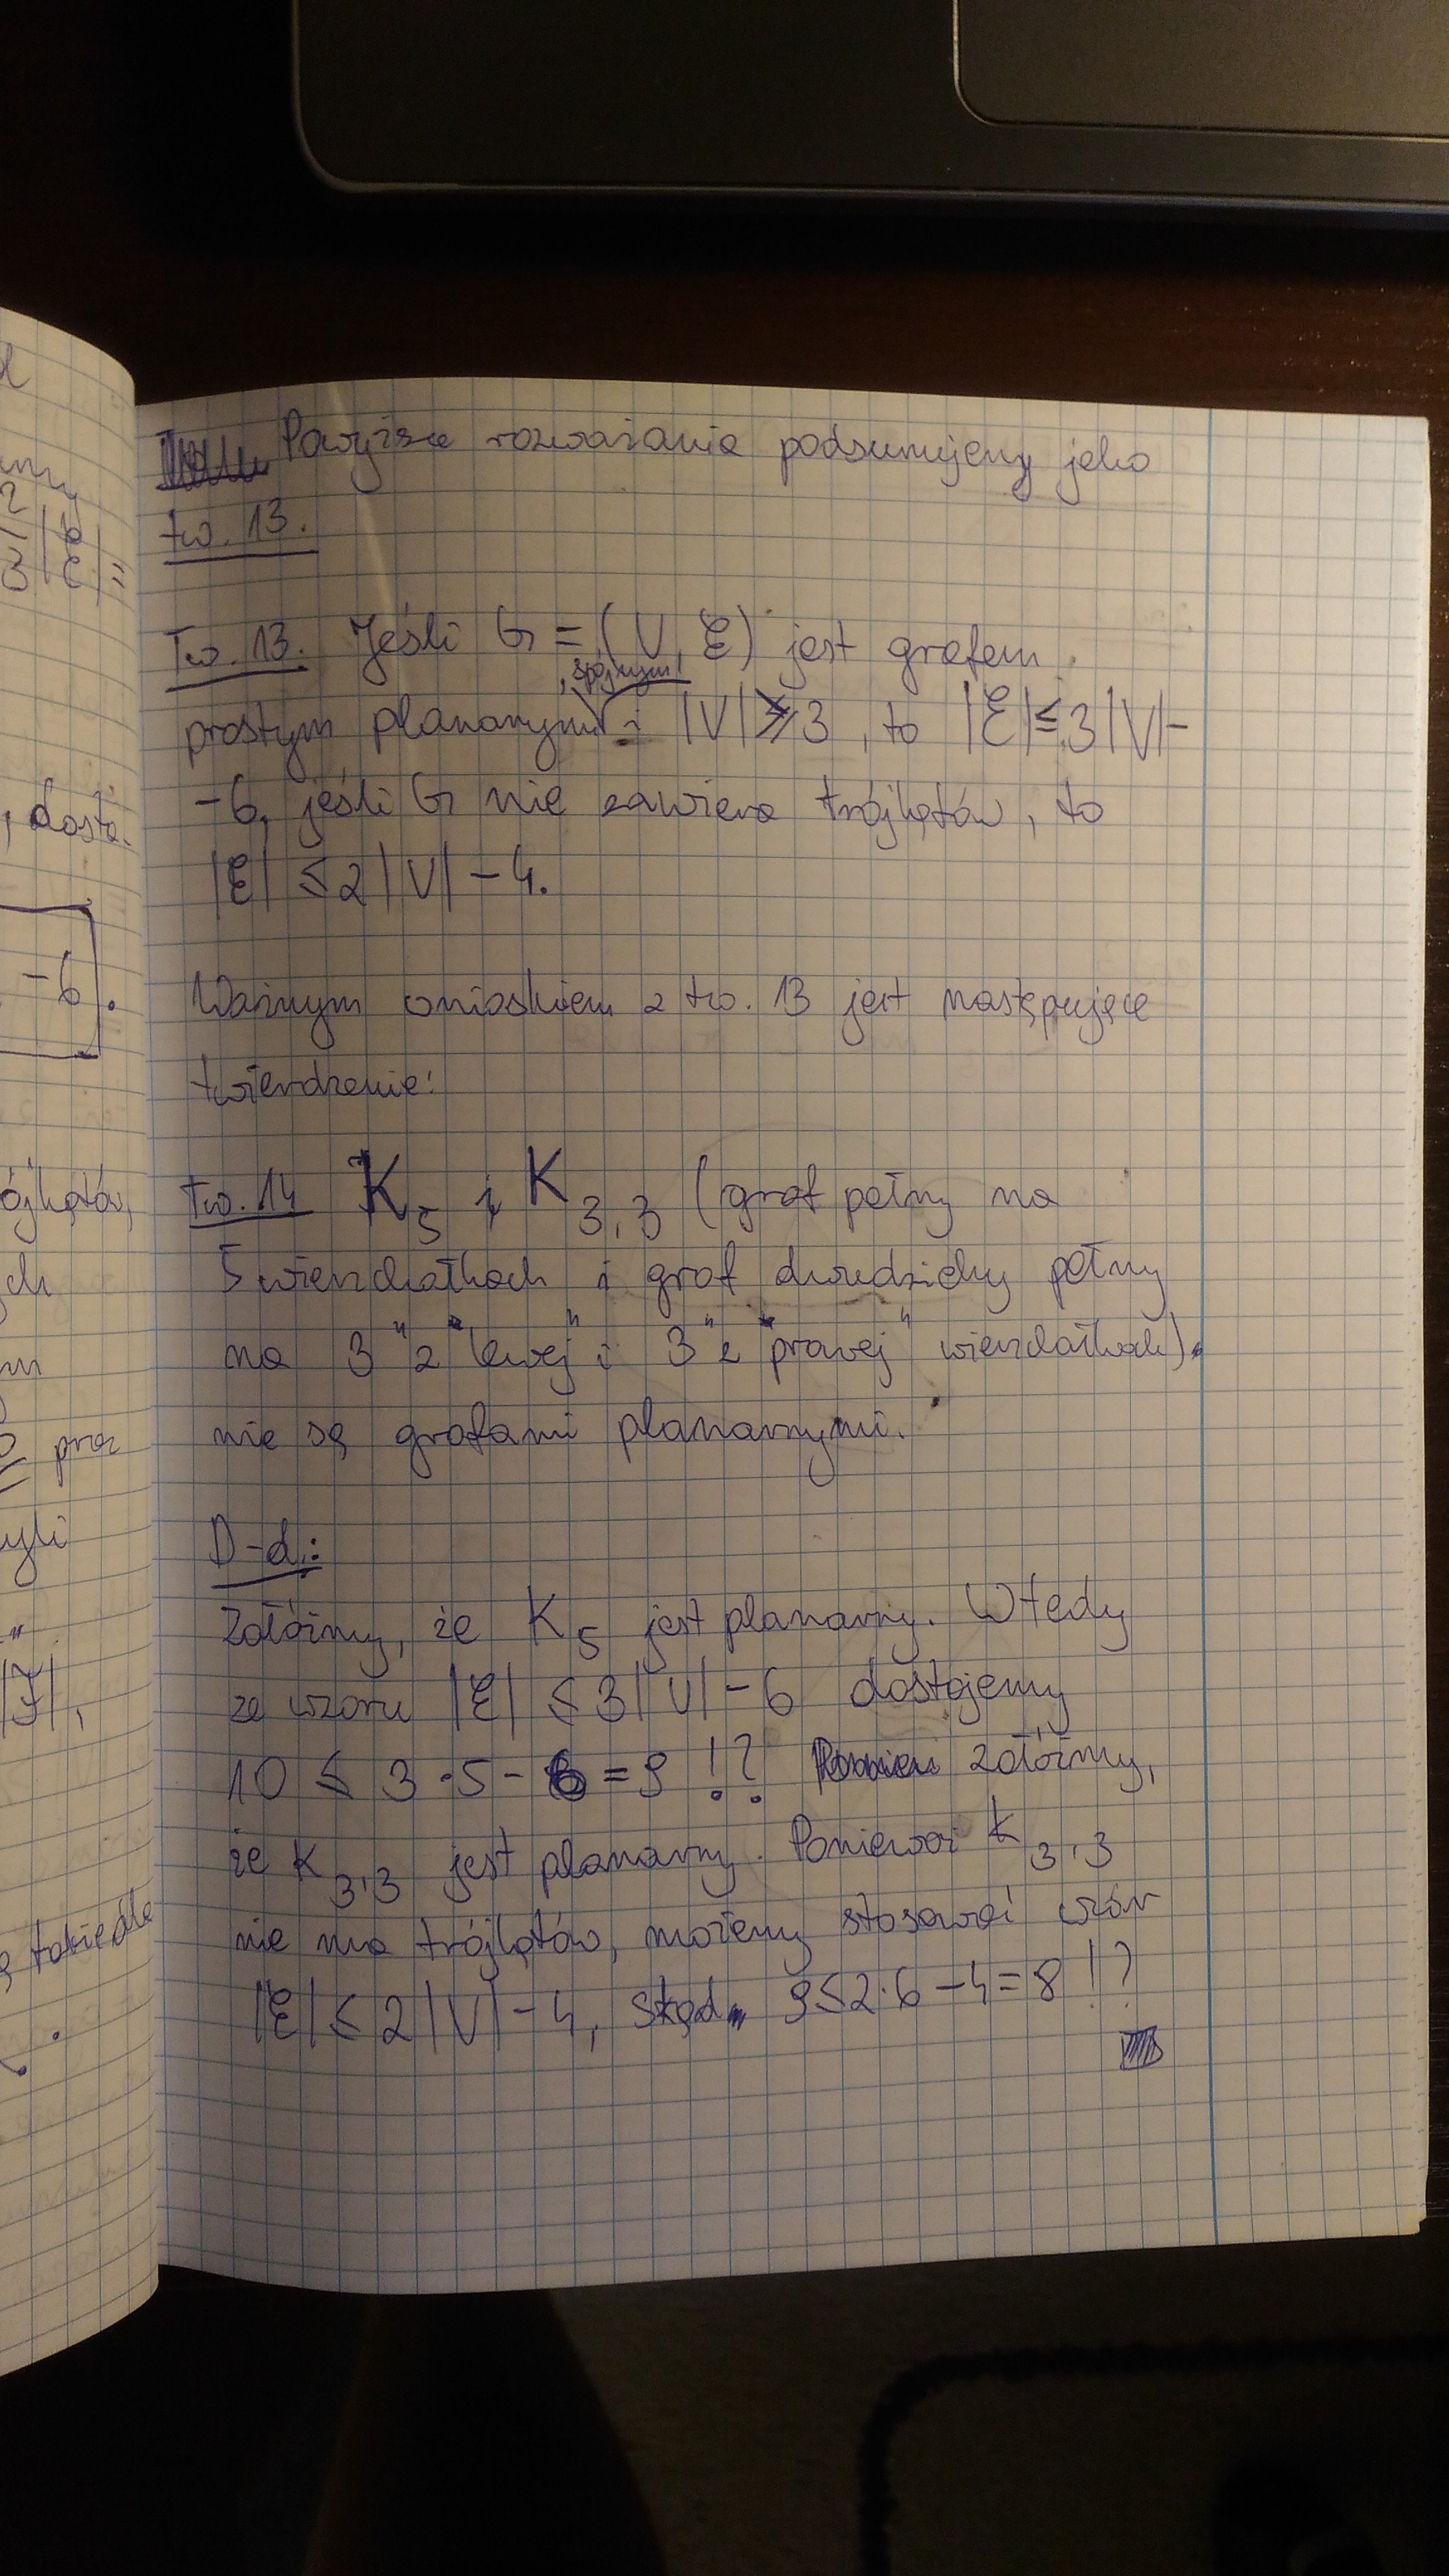 Powyższe rozważania podsumujemy jako
tw. 13.
Tw. 13. Jeśli G = (V, E) jest grafem
, spójnym
prostym planarnym i |V| ≥ 3, to |E| ≤ 3|V| -
- 6, jeśli G nie zawiera trójkątów, to
|E| ≤ 2|V| - 4.
Ważnym wnioskiem z tw. 13 jest następujące
twierdzenie:
Tw. 14 K5 i K3,3 (graf pełny na
5 wierzchołkach i graf dwudzielny pełny
na 3 "z lewej" i 3 "z prawej" wierzchołkach)
nie są grafami planarnymi.
D-d.:
Załóżmy, że K5 jest planarny. Wtedy
ze wzoru |E| ≤ 3|V| - 6 dostajemy
10 ≤ 3·5 - 6 = 9 !? Załóżmy,
że K3,3 jest planarny. Ponieważ K3,3
nie ma trójkątów, możemy stosować wzór
|E| ≤ 2|V| - 4, skąd 9 ≤ 2·6 - 4 = 8 !?
, dosta.
- 6.
ójkątów,
ych
prze
yli
|F|,
takie dla